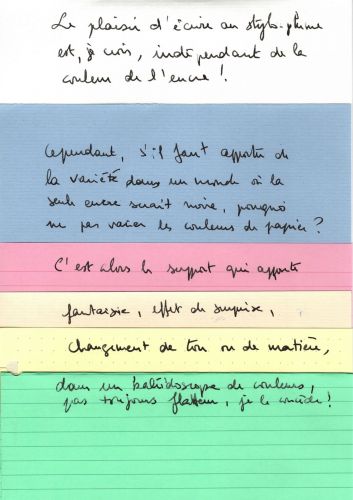 Le plaisir d'écrire au stylo-plume
est, je crois, indépendant de la
couleur de l'encre !
Cependant, s'il faut apporter de
la variété dans un monde où la
seule encre serait noire, pourquoi
ne pas varier les couleurs de papier ?
C'est alors le support qui apporte
fantaisie, effet de surprise,
changement de ton ou de matière,
dans un kaléidoscope de couleurs,
pas toujours flatteur, je le concède !